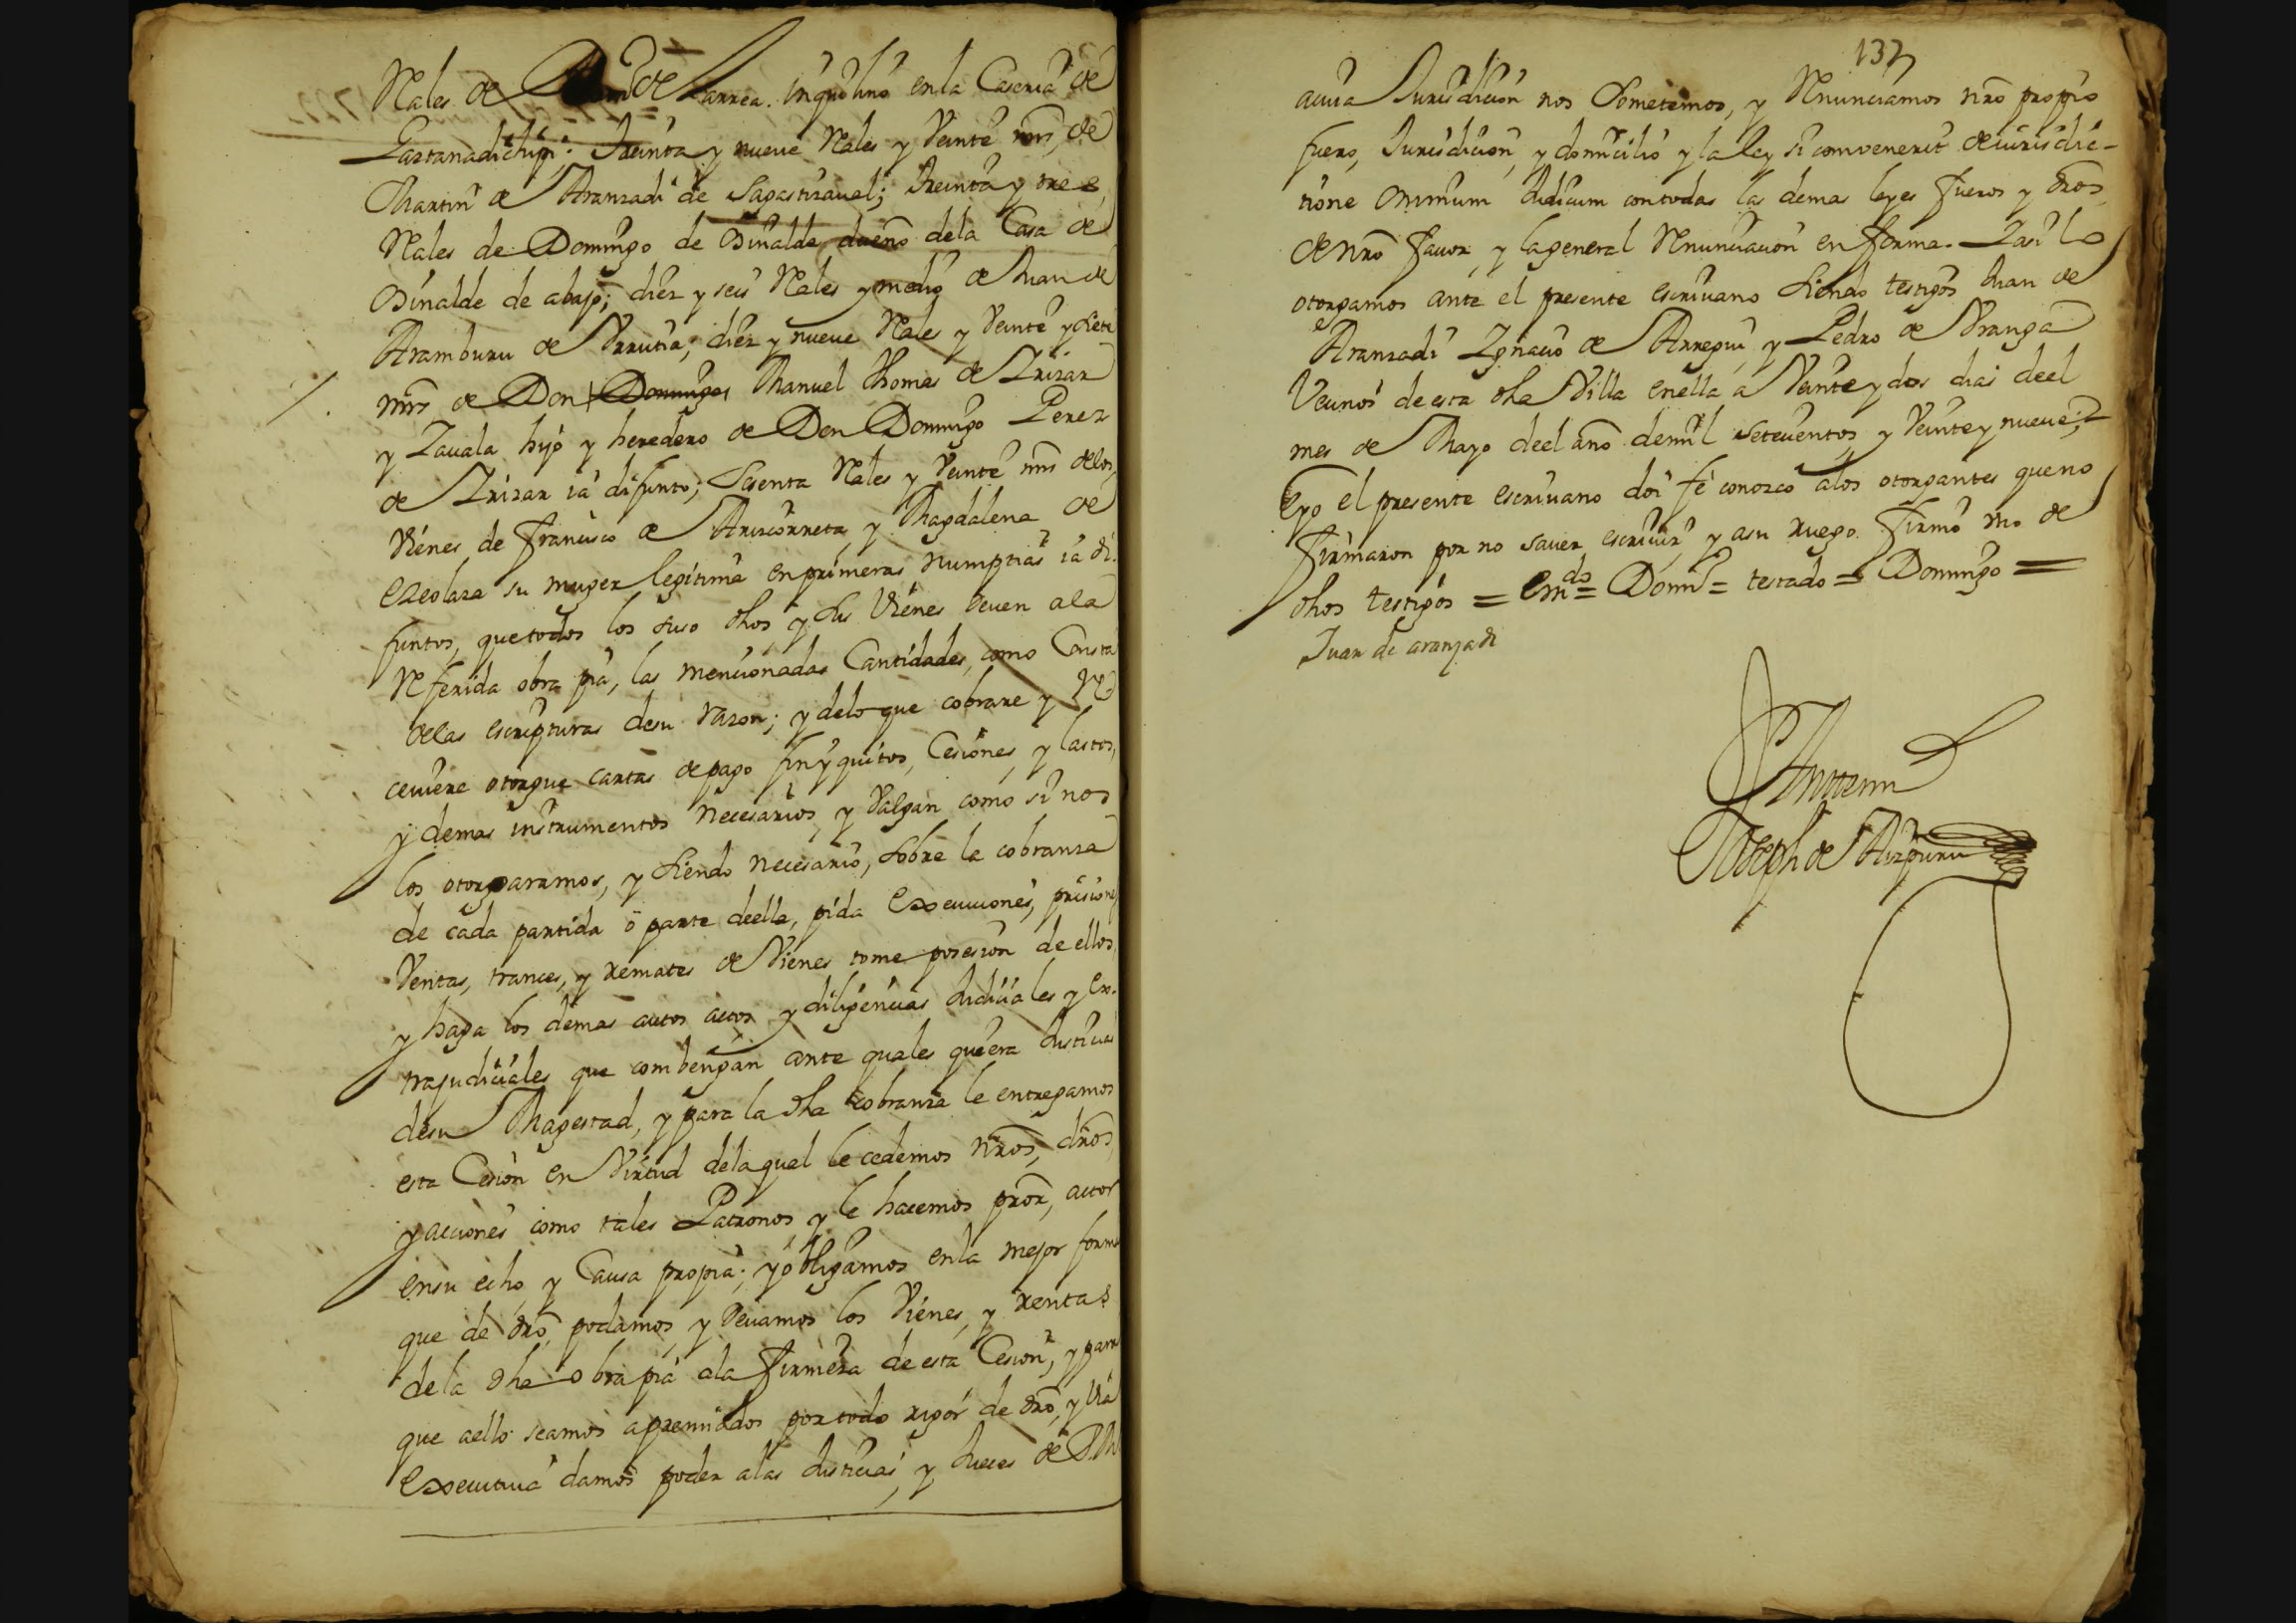 Rales de Dom.o de Larrea. inquilino en la Caseria de
Gaztanadichipi; treinta y nueve Rales y Veinte mrs, de
Martin de Aranzadi de Sagastizaval; treinta y tres
Rales de Domingo de Olinalde dueño dela Casa de
Olinalde de abajo; diez y seis Rales y medio de Juan de
Aramburu de Urrutia; diez y nueve Rales y Veinte y siete
mrs de Don Domingo Manuel Thomas de Irizar
y Zavala hijo y heredero de Don Domingo Perez
de Irizar ia difunto; Sesenta Rales y Veinte mrs delos
Vienes de Francisco de Ariscorreta y Magdalena de
su muger legitima en primeras numpzias ia di-
funtos, que todos los suso dhos y sus Vienes deven ala
Referida obra pia, las mencionadas Cantidades, como Consta
delas escripturas desu razon; y delo que cobrare y Re-
ceviere otorgue cartas de pago finyquitos, Cesiones, y lastos,
y demas instrumentos necesarios, y Valgan como si nos-
los otorgaramos, y siendo necesario, sobre la cobranza
de cada partida o parte deella, pida Execuciones, prisiones
Ventas, trances, y remates de Vienes tome posesion de ellos,
y haga los demas autos actos y diligencias Judiciales y Ex-
trajudiciales que combengan ante quales quiera Justicias
desu Magestad, y para la dha cobranza le entregamos
esta Cesion en Virtud dela qual le cedemos nros, dros,
y acciones como tales Patronos, y le hacemos pror, actor
ensu echo, y Causa propia; y obligamos en la mejor forma
que de dro podamos, y devamos los Vienes, y rentas
dela dha obra pia ala firmeza de esta Cesion, y para
que aello seamos apremiados por todo rigor de dro, y Via
Executiva damos poder alas Justicias, y Jueces de S.M.
137
acuia Jurisdicion nos Sometemos, y Renunciamos nro propio
fuero, Jurisdicion, y domicilio y la ley si combenerit de iurisdic-
tione Omnium Judicum con todas las demas leyes fueros y dros
de nro favor, y la general Renunciacion en forma. I asi lo
otorgamos ante el presente escrivano siendo testigos Juan de
Aranzadi Ignacio de Arregui y Pedro de Uranga
Vecinos de esta dha Villa en ella a Veinte y dos dias deel
mes de Mayo deel año demil setecientos y Veinte y nueve;
Eyo el presente escrivano doi fe conozco alos otorgantes que no
firmaron por no saver escrivir, y asu ruego firmo uno de
dhos testigos = Emdo = Domo = testado = Domingo =
Juan de aranzadi
Joseph de Aizpuru